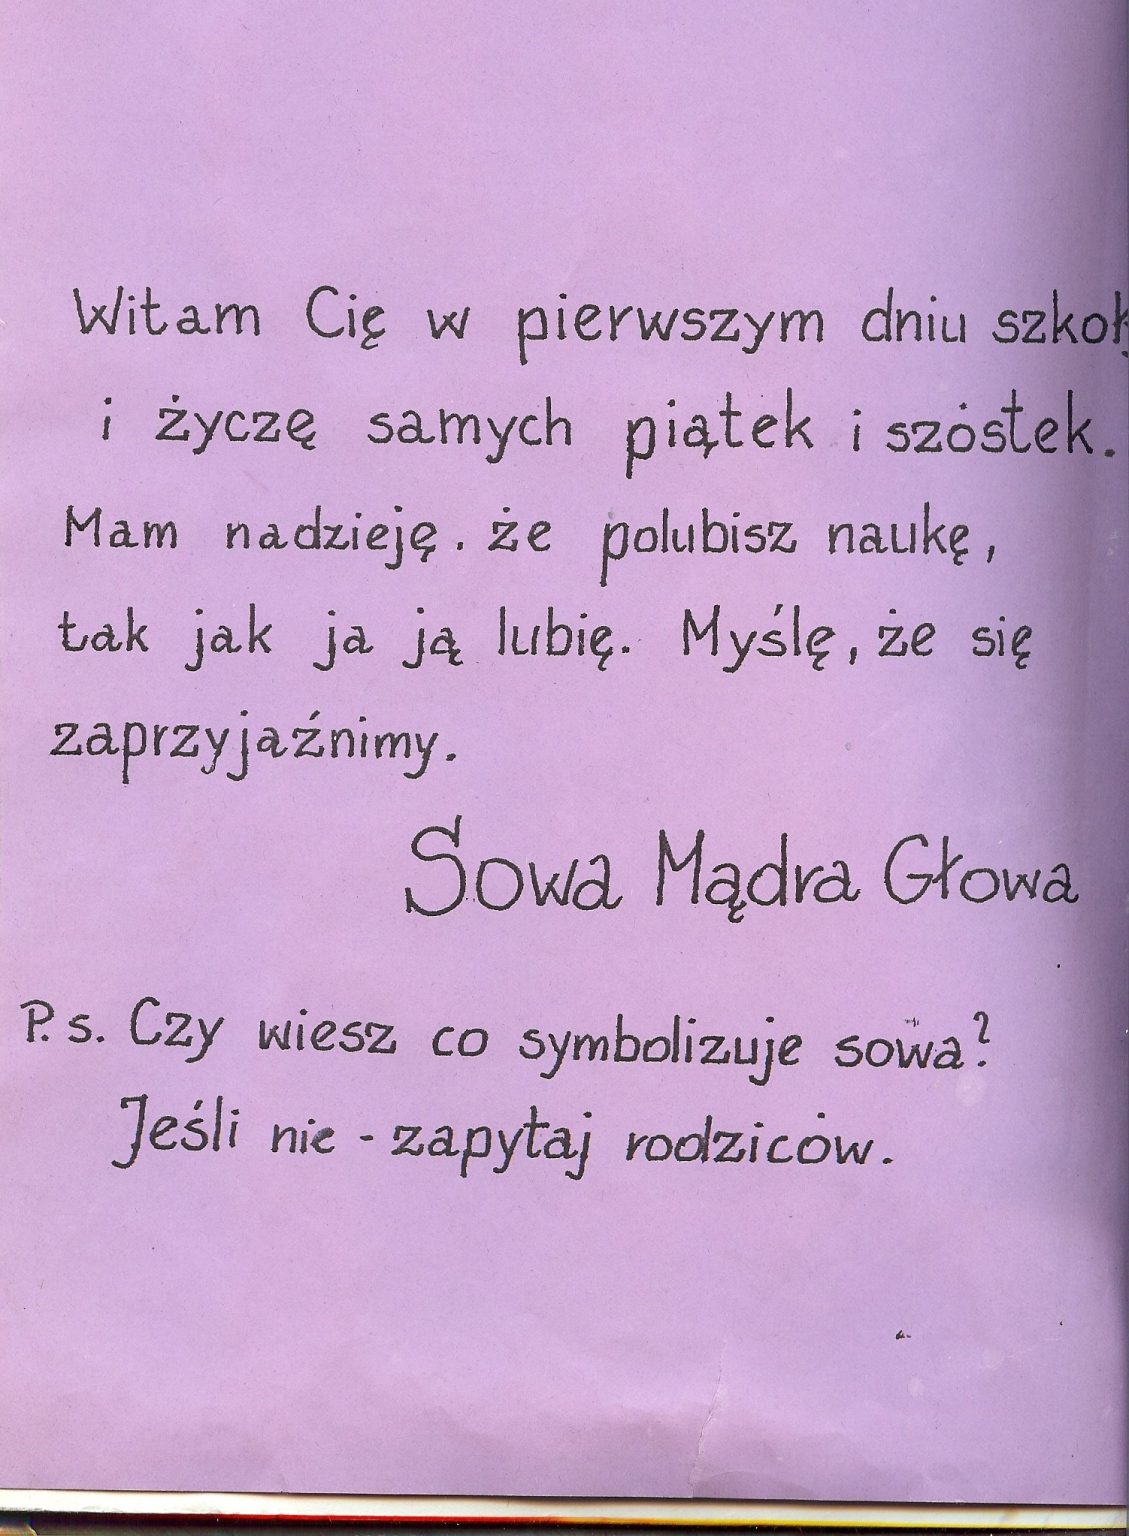 Witam Cię w pierwszym dniu szkoł
i życzę samych piątek i szóstek.
Mam nadzieję. że polubisz naukę,
tak jak ja ją lubię. Myślę, że się
zaprzyjaźnimy.
Sowa Mądra Głowa
P.s. Czy wiesz co symbolizuje sowa?
Jeśli nie - zapytaj rodziców.